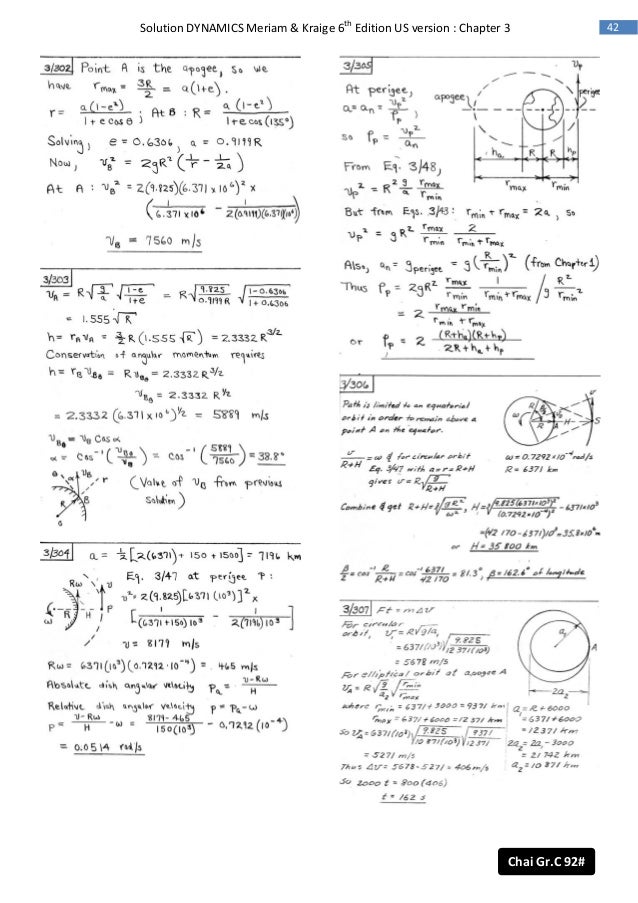 Solution DYNAMICS Meriam & Kraige 6th Edition US version : Chapter 3
42
3/302 Point A is the apogee, so we
have r_max = 3R/2 = a(1+e).
r = a(1-e²)/(1+e cos θ) ; At B : R = a(1-e²)/(1+e cos(135°))
Solving, e = 0.6306, a = 0.9199R
Now, v_B² = 2gR²(1/r - 1/2a)
At A : v_B² = 2(9.825)(6.371 x 10⁶)² x
(1/6.371 x 10⁶ - 1/2(0.9199)(6.371)(10⁶))
v_B = 7560 m/s
3/303
v_A = R√(g/a) √(1-e/1+e) = R√(9.825/0.9199R) √(1-0.6306/1+0.6306)
= 1.555√R
h = r_A v_A = 3/2 R(1.555√R) = 2.3332 R^3/2
Conservation of angular momentum requires
h = r_B v_Bθ = R v_Bθ = 2.3332 R^3/2
v_Bθ = 2.3332 R^1/2
= 2.3332 (6.371 x 10⁶)^1/2 = 5889 m/s
v_Bθ = v_B cos α
α = cos⁻¹(v_Bθ/v_B) = cos⁻¹(5889/7560) = 38.8°
(Value of v_B from previous
solution)
α
v_B
R
B
3/304 a = ½[2(6371) + 150 + 1500] = 7196 km
Eq. 3/47 at perigee P :
v² = 2(9.825)[6371(10³)]² x
[1/(6371+150)10³ - 1/2(7196)10³]
v = 8179 m/s
Rω
v
R
H
P
ω
Rω = 6371(10³)(0.7292·10⁻⁴) = 465 m/s
Absolute dish angular velocity p_a = v-Rω/H
Relative dish angular velocity p = p_a-ω
p = v-Rω/H - ω = 8179-465/150(10³) - 0.7292(10⁻⁴)
= 0.0514 rad/s
3/305
At perigee,
a = a_n = v_p²/ρ_p,
so ρ_p = v_p²/a_n
v_p
apogee
perigee
h_a
R
R
h_p
r_max
r_min
From Eq. 3/48,
v_p² = R² g/a r_max/r_min
But from Eqs. 3/43 : r_min + r_max = 2a, so
v_p² = gR² r_max/r_min 2/r_min+r_max
Also, a_n = g_perigee = g(R/r_min)² (from Chapter 1)
Thus ρ_p = 2gR² r_max/r_min 1/r_min+r_max / g R²/r_min²
= 2 r_max r_min/r_min + r_max
or ρ_p = 2 (R+h_a)(R+h_p)/2R+h_a+h_p
3/306
Path is limited to an equatorial
orbit in order to remain above a
point A on the equator.
ω
R
A
H
S
v
v/R+H = ω & for circular orbit
Eq. 3/47 with a=r=R+H
gives v = R√(g/R+H)
ω = 0.7292×10⁻⁴ rad/s
R = 6371 km
Combine & get R+H = ∛(gR²/ω²), H = ∛(9.825(6371×10³)²/(0.7292×10⁻⁴)²) - 6371×10³
=(42 170-6371)10³=35.8×10⁶m
or H = 35 800 km
β/2 = cos⁻¹ R/R+H = cos⁻¹ 6371/42 170 = 81.3°, β = 162.6° of longitude
3/307 Ft = mΔv
For circular
orbit, v₁ = R√(g/a₁)
= 6371(10³)√(9.825/12 371(10³))
= 5678 m/s
For elliptical orbit at apogee A
v_A = R√(g/a₂)√(r_min/r_max)
where r_min = 6371+3000 = 9371 km
r_max = 6371+6000 = 12 371 km
So v_A = 6371(10³)√(9.825/10 871(10³))√(9371/12 371)
= 5271 m/s
Thus Δv = 5678-5271 = 406 m/s
So 2000 t = 800(406)
t = 162 s
a₁
A
2a₂
a₁ = R+6000
= 6371+6000
= 12 371 km
2a₂ = 2a₁-3000
= 21 742 km
a₂ = 10 871 km
Chai Gr.C 92#